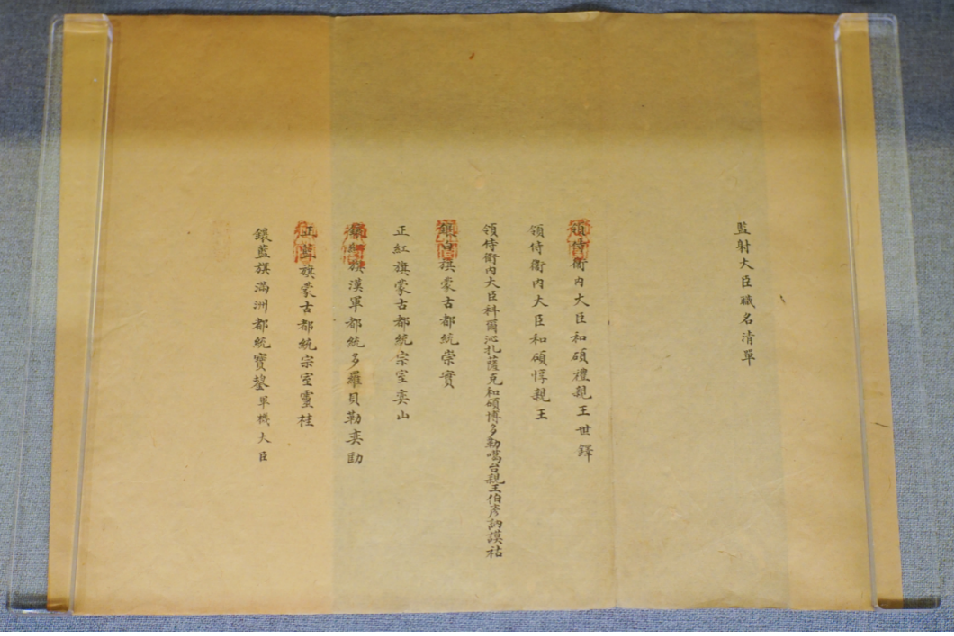 監射大臣職名清單
領侍衛內大臣和碩禮親王世鐸
領侍衛內大臣和碩惇親王
領侍衛內大臣科爾沁札薩克和碩博多勒噶台親王伯彥訥謨祜
鑲白旗蒙古都統崇實
正紅旗蒙古都統宗室奕山
鑲紅旗漢軍都統多羅貝勒奕劻
正藍旗蒙古都統宗室靈桂
鑲藍旗滿洲都統寶鋆軍機大臣